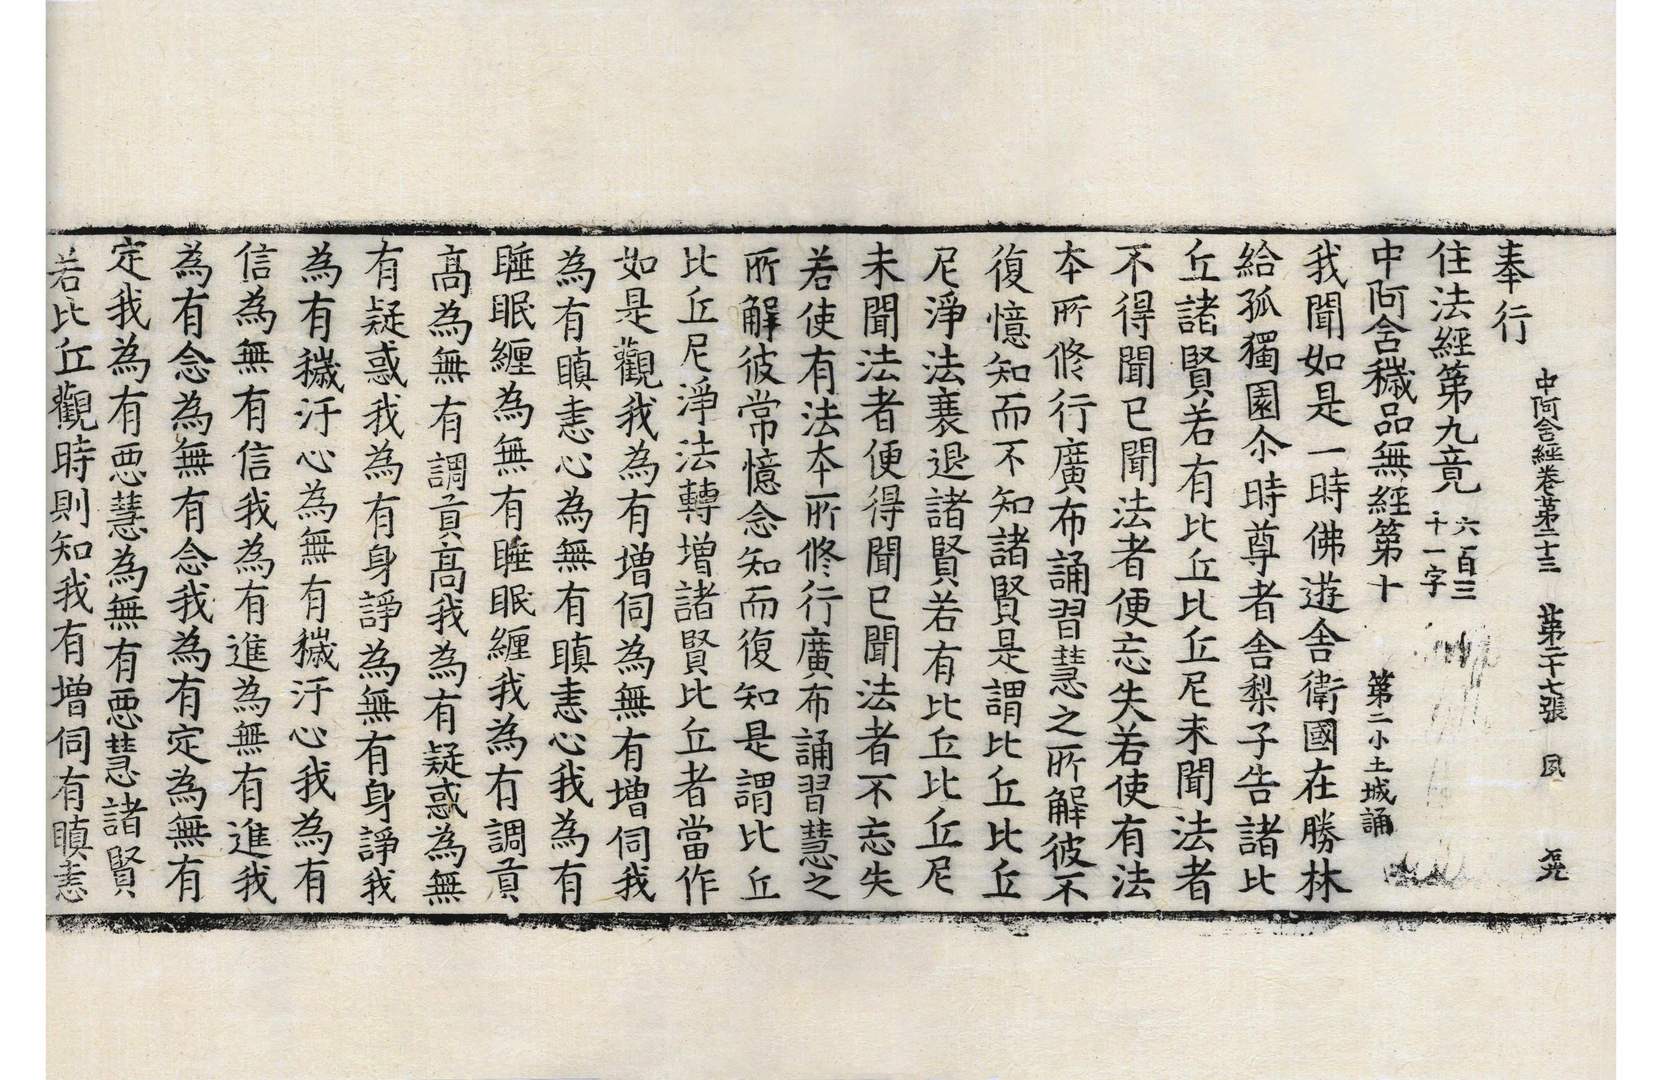 中阿含經卷第二十三 第二十七張 夙
奉行
住法經第九竟 六百三十一字
中阿含穢品無經第十 第二小土城誦
我聞如是一時佛遊舍衛國在勝林
給孤獨園尒時尊者舍梨子告諸比
丘諸賢若有比丘比丘尼未聞法者
不得聞已聞法者便忘失若使有法
本所修行廣布誦習慧之所解彼不
復憶知而不知諸賢是謂比丘比丘
尼淨法衰退諸賢若有比丘比丘尼
未聞法者便得聞已聞法者不忘失
若使有法本所修行廣布誦習慧之
所解彼常憶念知而復知是謂比丘
比丘尼淨法轉增諸賢比丘者當作
如是觀我為有增伺為無有增伺我
為有瞋恚心為無有瞋恚心我為有
睡眠纏為無有睡眠纏我為有調貢
高為無有調貢高我為有疑惑為無
有疑惑我為有身諍為無有身諍我
為有穢汙心為無有穢汙心我為有
信為無有信我為有進為無有進我
為有念為無有念我為有定為無有
定我為有惡慧為無有惡慧諸賢
若比丘觀時則知我有增伺有瞋恚